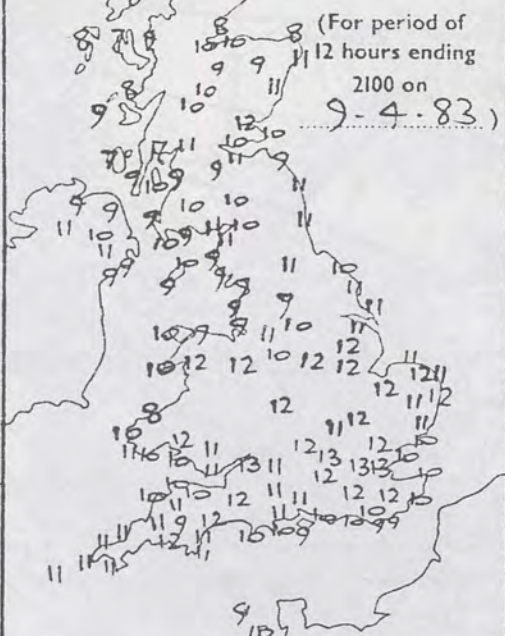 (For period of
12 hours ending
2100 on
9-4-83)
8 7 8 8 10 10 8
9 9 11
8 10 11
9 10
12 10
7 7 11 10
11 9 9
10 9 11
9 9 10 10
11 10 9 11 10 11
11 10 11
9 9 10 9 11 10
9 9 11
9 9 11
10 9 9 11 10 11
10 12 12 10 12 12 12 11
12 12 11
8 12 11 12 11 12
10 12 11 12 12 11 10
11 10 10 11 13 11 13 13 13 10
10 10 12 11 12 12 12 10 10
11 11 9 12 11 11 10 10 10 9 9
11 11 12 11 10 10 9
11 11
9
13